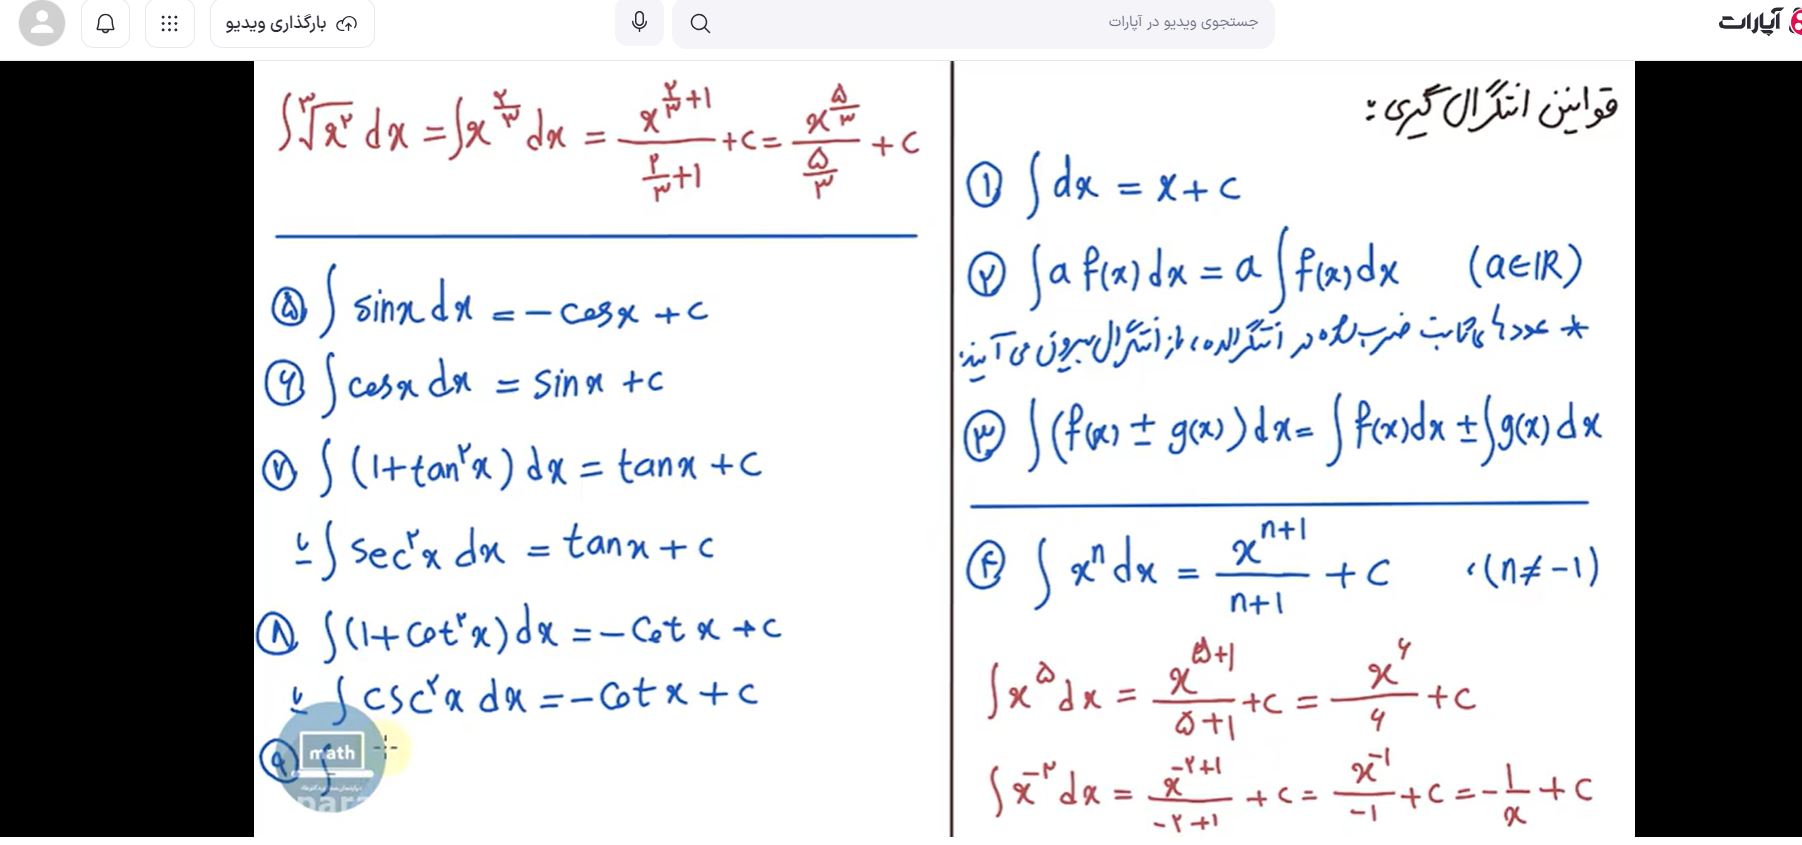 آپارات
جستجوی ویدیو در آپارات
بارگذاری ویدیو
قوانین انتگرال گیری :
① ∫ dx = x + c
② ∫ a f(x) dx = a ∫ f(x) dx (a ∈ IR)
* عددهای ثابت ضرب شده در انتگرالده، از انتگرال بیرون می آیند.
③ ∫ (f(x) ± g(x)) dx = ∫ f(x) dx ± ∫ g(x) dx
④ ∫ xⁿ dx = x^(n+1) / (n+1) + c ، (n ≠ -1)
∫ x^۵ dx = x^(۵+1) / (۵+1) + c = x^۶ / ۶ + c
∫ x^-۲ dx = x^(-۲+1) / (-۲+1) + c = x^-1 / -1 + c = - 1/x + c
∫ ۳√x^۲ dx = ∫ x^(۲/۳) dx = x^(۲/۳ +1) / (۲/۳ +1) + c = x^(۵/۳) / (۵/۳) + c
⑤ ∫ sinx dx = - cosx + c
⑥ ∫ cosx dx = sinx + c
⑦ ∫ (1+tan^۲x) dx = tanx + c
یا ∫ sec^۲x dx = tanx + c
⑧ ∫ (1+cot^۲x) dx = - cotx + c
یا ∫ csc^۲x dx = - cotx + c
⑨ ∫
math